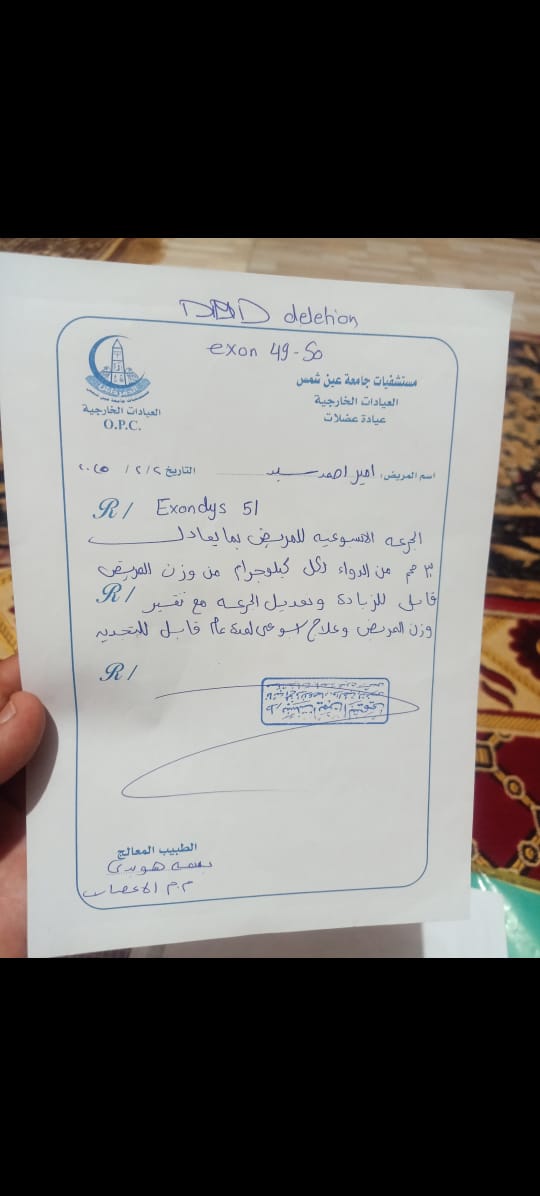 DMD deletion
exon 49-50
مستشفيات جامعة عين شمس
العيادات الخارجية
عيادة عضلات
العيادات الخارجية
O.P.C.
اسم المريض: امير احمد سيد
التاريخ ٢/٢ / ٢٠٢٥
R/ Exondys 51
الجرعه الاسبوعيه للمريض بما يعادل
٣٠ مجم من الدواء لكل كيلوجرام من وزن المريض
R/ قابل للزيادة وتعديل الجرعه مع تغير
وزن المريض وعلاج اسبوعى لمدة عام قابل للتجديد
R/
الطبيب المعالج
بسمه
م.م الاعصاب